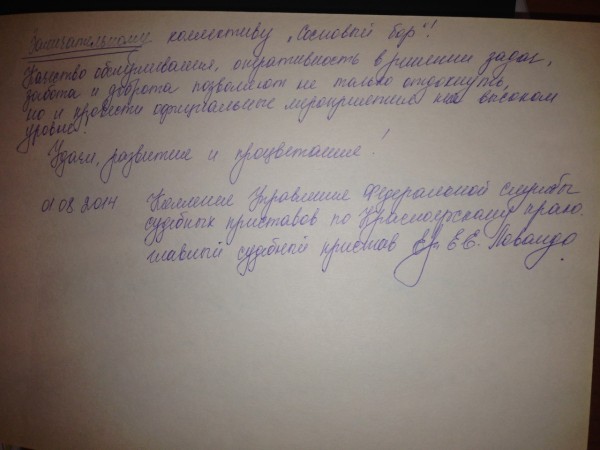 Замечательному коллективу "Сосновый бор"!
Качество обслуживания, оперативность в решении задач,
забота и доброта позволяют не только отдохнуть,
но и провести официальные мероприятия на высоком
уровне!
Удачи, развития и процветания!
01.08.2014 Коллектив Управления Федеральной службы
судебных приставов по Красноярскому краю.
главный судебный пристав Е.Е.